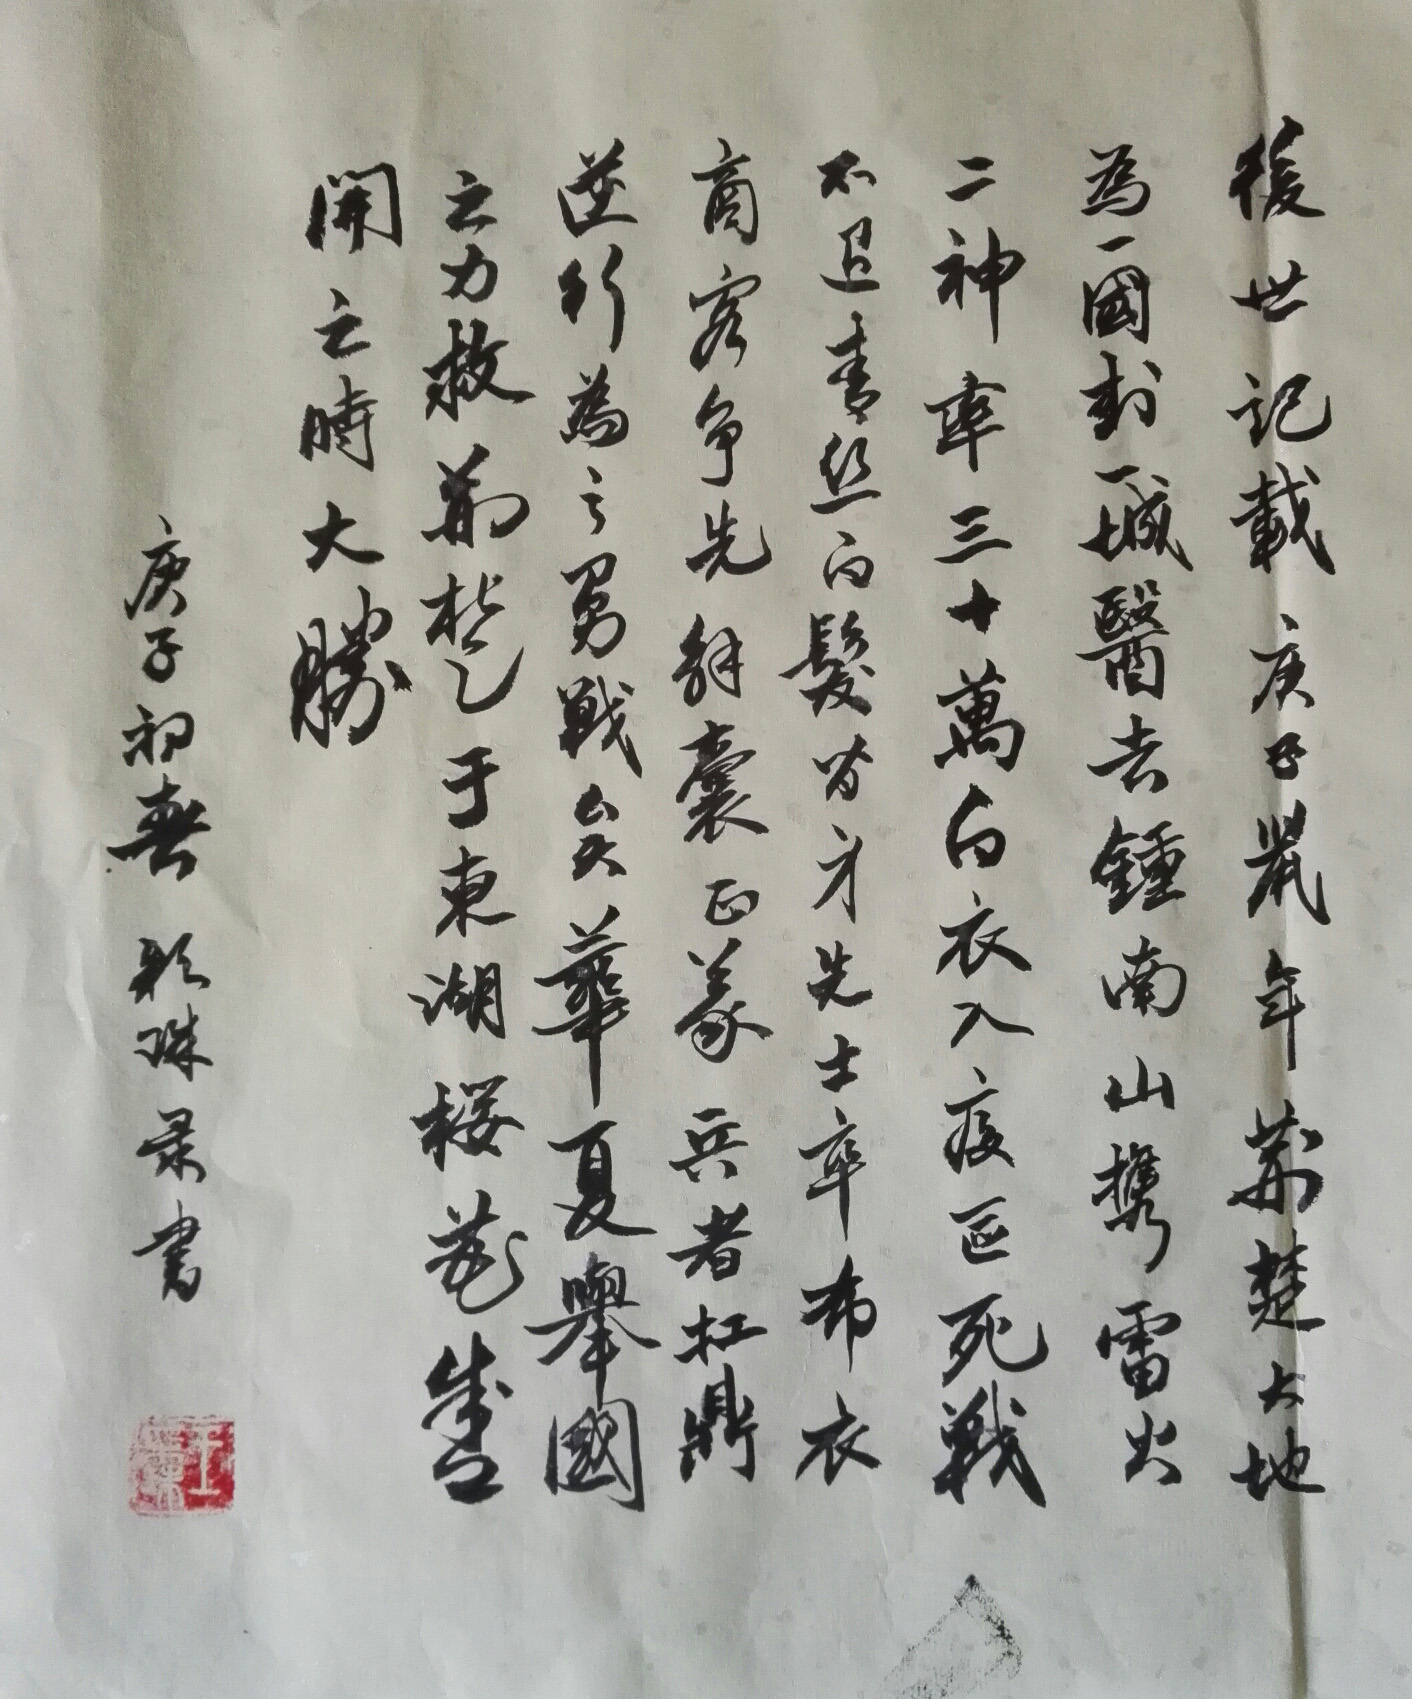 後世記載庚子鼠年荊楚大地
為一國封一城醫者鍾南山攜雷火
二神率三十萬白衣入疫區死戰
不退青丝白髮皆身先士率布衣
商客争先解囊以義兵者扛鼎
逆行為之勇戰矣華夏舉國
之力救荊楚于東湖桜花盛
開之時大勝
庚子初春彩珠录書